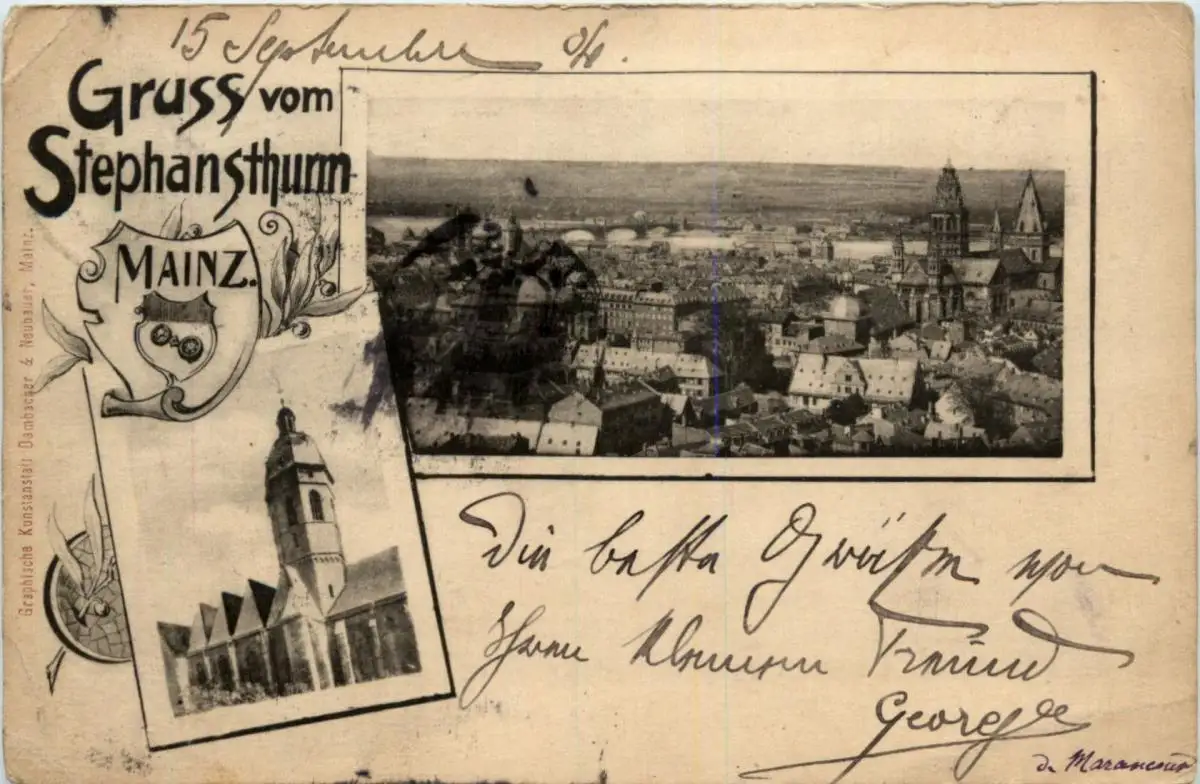 15 Septembre
Gruss vom
Stephansthurm
MAINZ.
Graphische Kunstanstalt Dambacher & Neubauer, Mainz.
Die beste Grüßen von
Ihren kleinen Freund
George
de